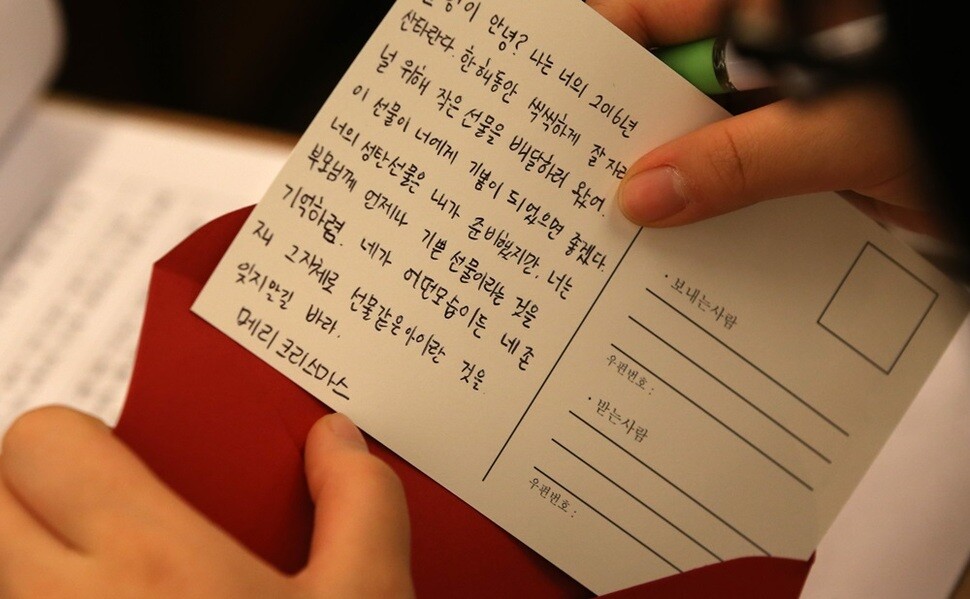 안녕? 나는 너의 2016년
산타란다. 한해동안 씩씩하게 잘 자라
널 위해 작은 선물을 배달하러 왔어.
이 선물이 너에게 기쁨이 되었으면 좋겠다.
너의 성탄선물은 내가 준비했지만, 너는
부모님께 언제나 기쁜 선물이라는 것을
기억하렴. 네가 어떤모습이든 네 존
재 그자체로 선물같은아이란 것을
잊지안길 바라.
메리크리스마스
· 보내는사람
우편번호 :
· 받는사람
우편번호 :